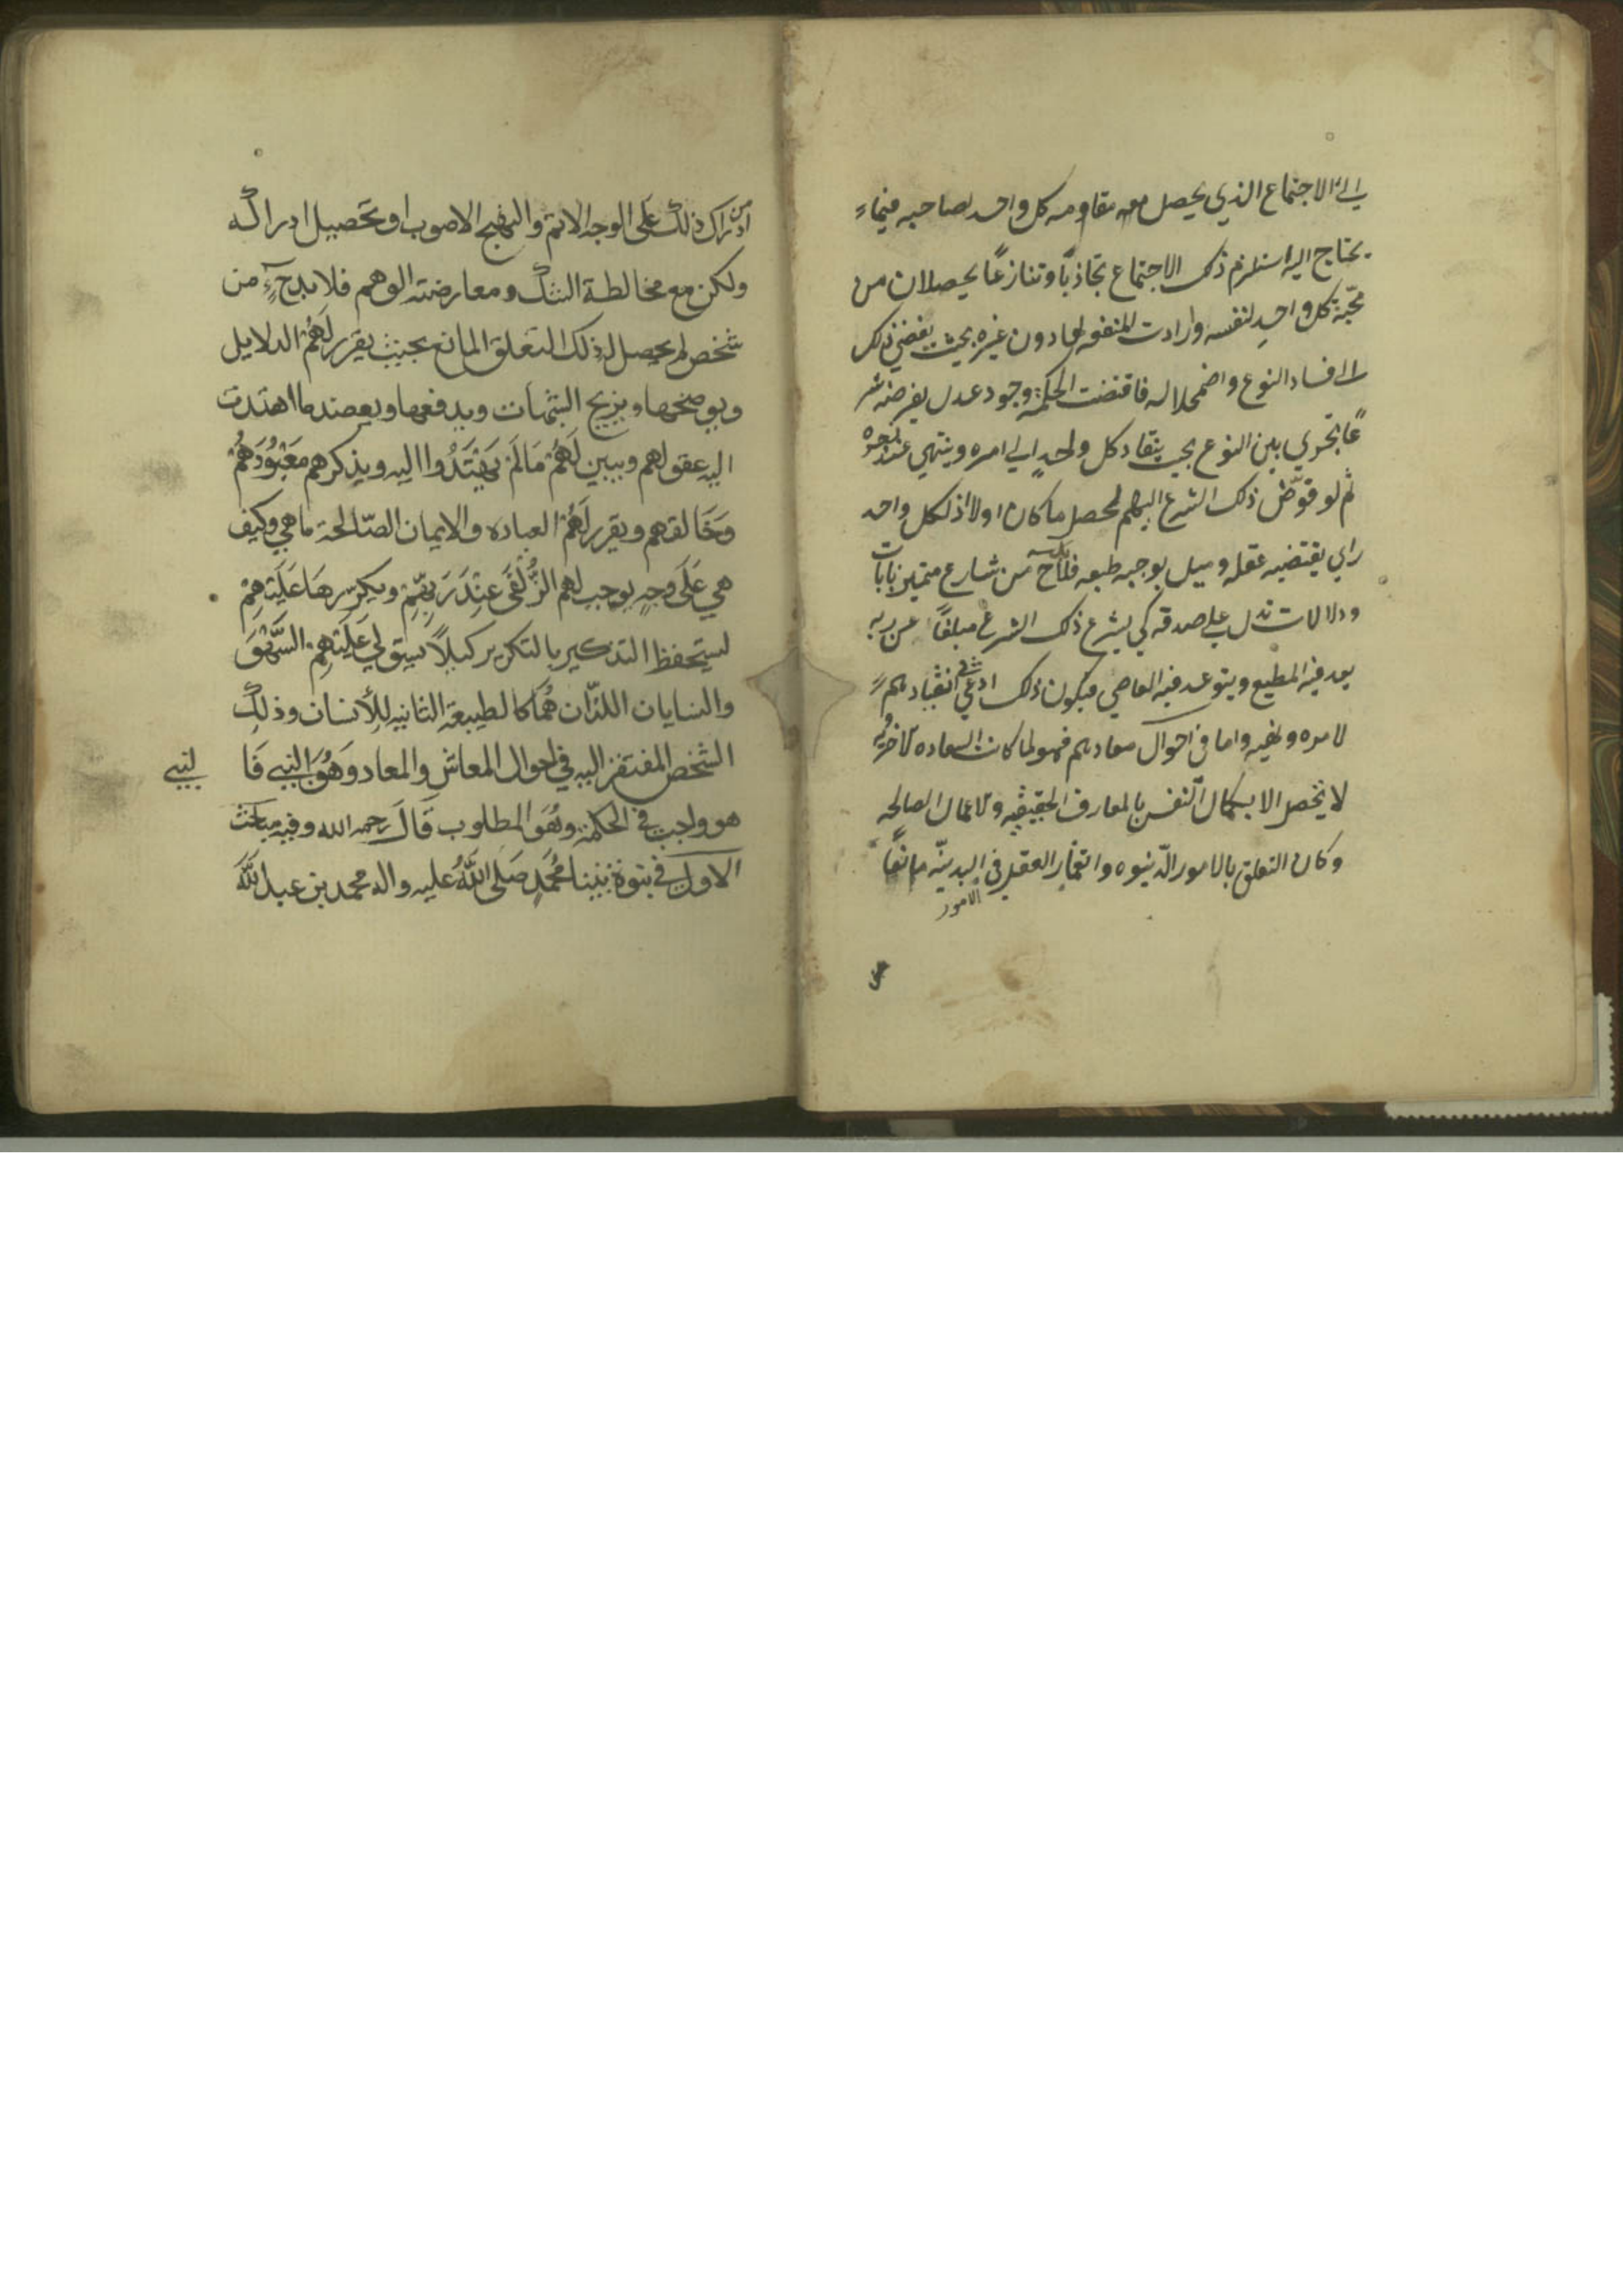 الي الاجتماع الذي يحصل معه مقاومه كل واحد لصاحبه فيماء
يحتاج اليه استلزم ذلك الاجتماع تجاذبًا وتنازعًا يحصلان من
محبّة كل واحدٍ لنفسه وارادت المنفعه لها دون غيره بحيث يفضي ذلك
الي فساد النوع واضمحلاله فاقتضت الحكمة وجود عدل يفرضه شر
عًا يجري بين النوع بحيث ينقاد كل واحدٍ الي امره وينتهي عند زجره
ثم لو فوّض ذلك الشرع اليهم لحصل ما كان اولا اذ لكل واحد
راي يقتضيه عقله وميل يوجبه طبعه فلا بد ح من شارع متميز بايات
ودلالات تدل علي صدقه كي يشرع ذلك الشرع مبلغًا عن ربه
يعد فيه المطيع ويتوعد فيه العاصي فيكون ذلك ادعي في انقيادهم
لامره ونهيه واما في احوال معادهم فهو لما كانت السعاده الاخرويه
لا تحصل الا بكمال النفس بالمعارف الحقيقيه والاعمال الصالحه
وكان التعلق بالامور الدّنيوه وانغمار العقل في البدنيّه مانعًا
الامور
من
ادراك ذلك على الوجه الاتم والنهج الاصوب او تحصيل ادراكه
ولكن مع مخالطة الشك ومعارضته الوهم فلا بد ح من
شخص لم يحصل له ذلك التعلق المانع بحيث يقرر لَهُمْ الدلايل
ويوضحها ويزيح الشبهات ويدفعها ويعضد ما اهتدت
اليه عقولهم ويبين لَهُمْ مَا لَمْ يَهْتَدُوا اليه ويذكرهم مَعْبُوْدَهُمْ
وَخَالقهم ويقرر لَهُمْ العباده والايمان الصّالحة ما هي وكيف
هي عَلَى وجهٍ يوجب لهم الزُّلْفَى عِنْدَ رَبِّهِمْ ويكرّرهَا عَلَيْهِمْ
ليستحفظ التذكير بالتكرير كيلاً يستولي عَلَيْهِمْ السَّهْوَ
والنسايان اللذّان هُمَا كالطبيعة الثانيه للأنسان وذلك
الشخص المفتقر اليه في احوال المعاش والمعاد وَهُوَ النبي فَا
لنبي
هو واجب في الحكمة وهُوَ المطلوب قَالَ رحمه الله وفيه مباحث
الاول في نبوة نبينا مُحَمَّدٍ صَلى اللهُ عليه واله محمد بن عبد اللَّهَ